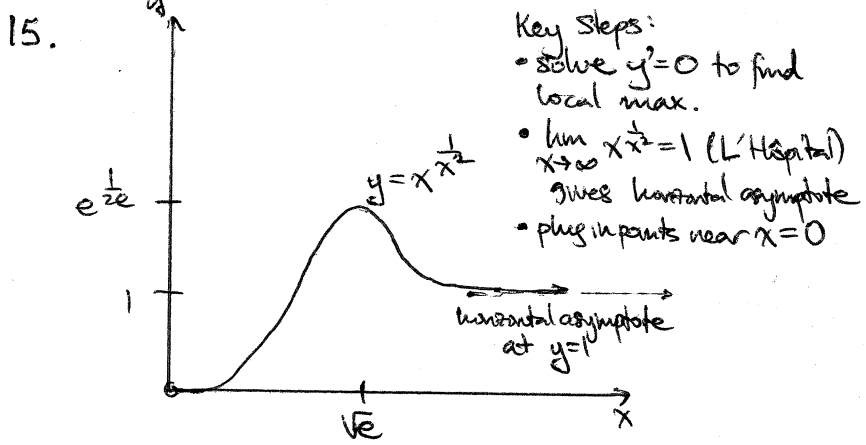 15.
y
Key Steps:
• solve y'=0 to find
local max.
• lim x→∞ x^(1/x²) = 1 (L'Hôpital)
gives horizontal asymptote
• plug in points near x=0
y = x^(1/x²)
e^(1/2e)
1
horizontal asymptote
at y=1
√e
x